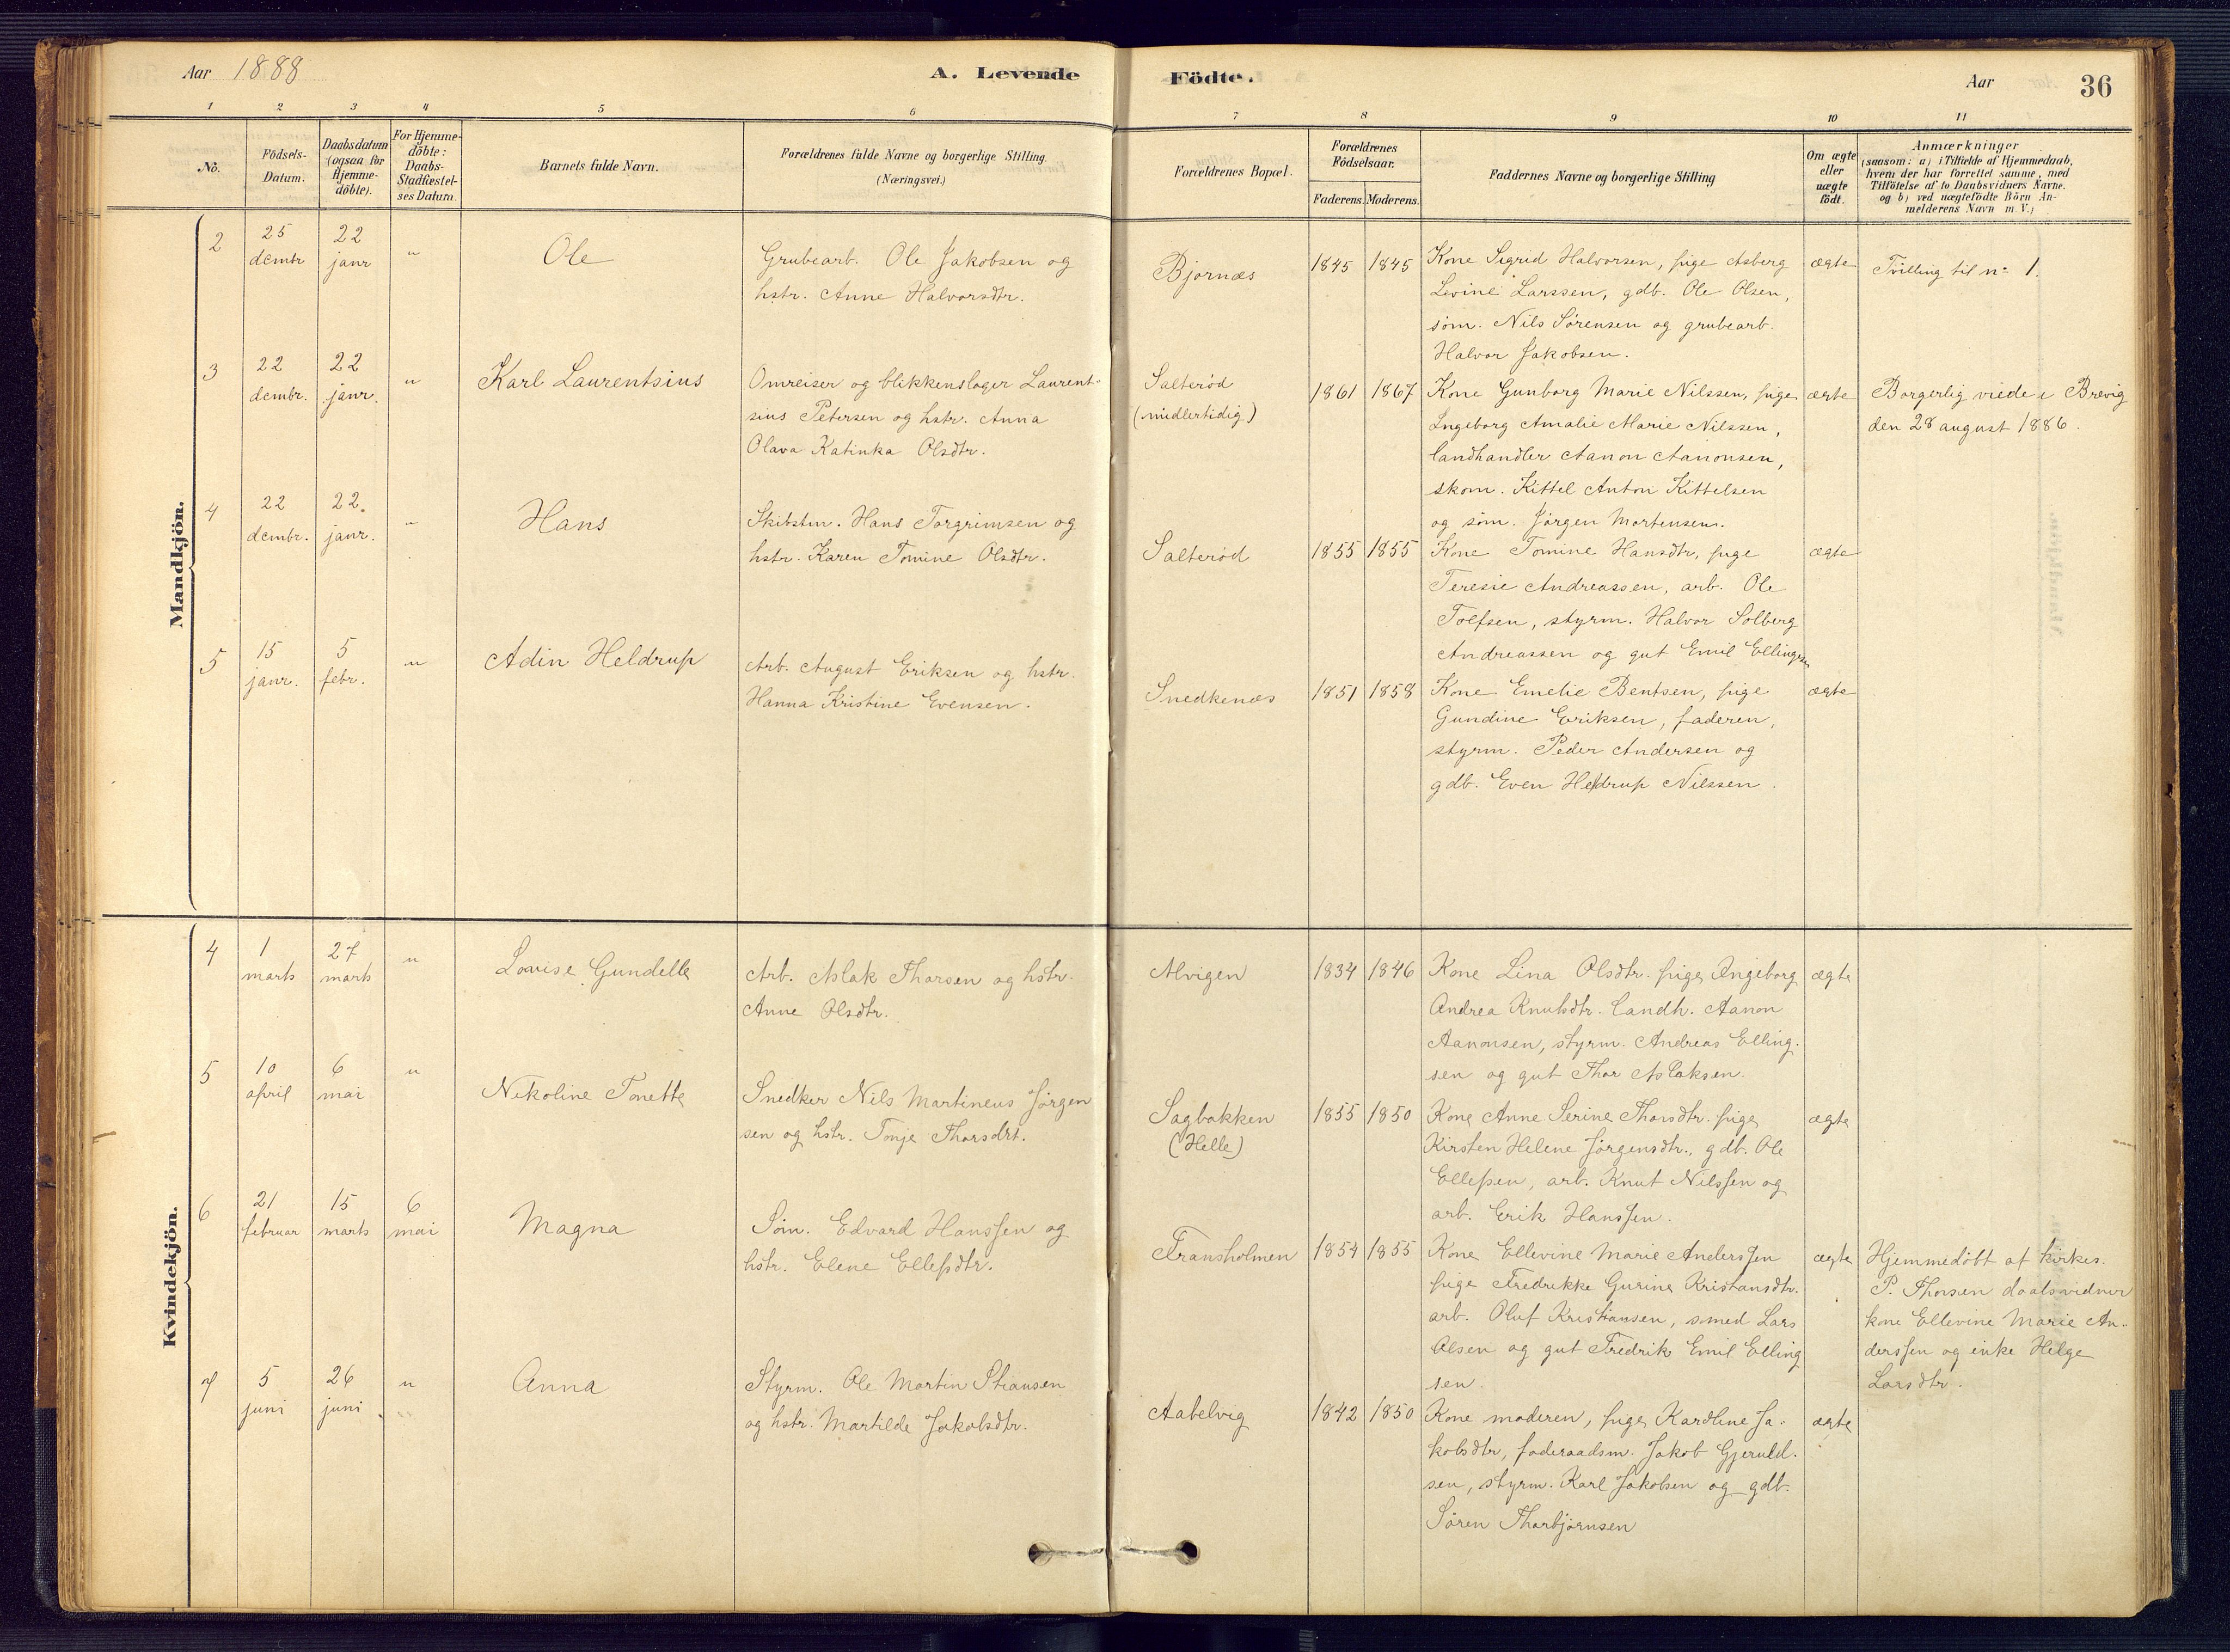 Aar 1888
A. Levende Födte.
Aar
36
1 2 3 4 5 6 7 8 9 10 11
No.
Födsels-
Datum.
Daabsdatum
(ogsaa for
Hjemme-
döbte).
For Hjemme-
döbte:
Daabs-
Stadfæstel-
ses Datum.
Barnets fulde Navn.
Forældrenes fulde Navne og borgerlige Stilling.
(Næringsvei.)
Forældrenes Bopæl.
Forældrenes
Födselsaar.
Faderens. Moderens.
Faddernes Navne og borgerlige Stilling
Om ægte
eller
uægte
födt.
Anmærkninger
(saasom: a) i Tilfælde af Hjemmedaab,
hvem der har forrettet samme, med
Tilföielse af to Daabsvidners Navne.
og b) ved uægtefödte Börn An-
melderens Navn m. V.)
Mandkjön.
2
25
dembr
22
janr
"
Ole
Grubearb. Ole Jakobsen og
hstr. Anne Halvorsdtr.
Bjornæs
1845 1845
Kone Sigrid Halvorsen, pige Asberg
Levine Larssen, gdb. Ole Olsen,
söm. Nils Sörensen og grubearb.
Halvor Jakobsen.
ægte
Tvilling til no 1.
3
22
dembr.
22
janr.
"
Karl Laurentsius
Omreiser og blikkenslager Laurent-
sius Petersen og hstr. Anna
Olava Katinka Olsdtr.
Salteröd
(midlertidig)
1861 1867
Kone Gunborg Marie Nilssen, pige
Ingeborg Amalie Marie Nilssen,
landhandler Aanon Aanonsen,
skom. Kittel Anton Kittelsen
og söm. Jörgen Mortensen.
ægte
Borgerlig viede i Brevig
den 28 august 1886.
4
22
dembr.
22.
janr.
"
Hans
Skibstm. Hans Torgrimsen og
hstr. Karen Tomine Olsdtr.
Salteröd
1855 1855
Kone Tomine Hansdtr, pige
Teresie Andreassen, arb. Ole
Toefsen, styrm. Halvor Solberg
Andreassen og gut Emil Ellingsen
ægte
5
15
janr.
5
febr.
"
Adin Heldrup
Arb. August Eriksen og hstr.
Hanna Kristine Evensen.
Snedkenæs
1851 1858
Kone Emelie Bentsen, pige
Gundine Eriksen, faderen,
styrm. Peder Andersen og
gdb. Even Heldrup Nilssen.
ægte
Kvindekjön.
4
1
marts
27
marts
"
Lovise Gundelle
Arb. Aslak Thorsen og hstr.
Anne Olsdtr.
Alvigen
1834 1846
Kone Lina Olsdtr. pige Ingeborg
Andrea Knutsdtr. landh. Aanon
Aanonsen, styrm. Andreas Elling-
sen og gut Thor Aslaksen.
ægte
5
10
april
6
mai
"
Nikoline Tonette
Snedker Nils Martineus Jörgen
sen og hstr. Tonje Thorsdrt.
Sagbakken
(Helle)
1855 1850
Kone Anne Serine Thorsdtr. pige
Kirsten Helene Jörgensdtr., gdb. Ole
Ellefsen, arb. Knut Nilssen og
arb. Erik Hanssen.
ægte
6
21
februar
15
marts
6
mai
Magna
Söm. Edvard Hanssen og
hstr. Elene Ellefsdtr.
Fransholmen
1854 1855
Kone Ellevine Marie Anderssen
pige Fredrikke Gurine Kristiansdtr.
arb. Oluf Kristiansen, smed Lars
Olsen og gut Fredrik Emil Elling
sen.
ægte
Hjemmedöbt af kirkes.
P. Thorsen daabsvidner
kone Ellevine Marie An-
derssen og enke Helge
Larsdtr.
7
5
juni
26
juni
"
Anna
Styrm. Ole Martin Stiansen
og hstr. Martilde Jakobsdtr.
Aabelvig
1842 1850
Kone moderen, pige Karoline Ja-
kobsdtr, föderaadsm. Jakob Gjeruld-
sen, styrm. Karl Jakobsen og gdb.
Sören Thorbjörnsen
ægte